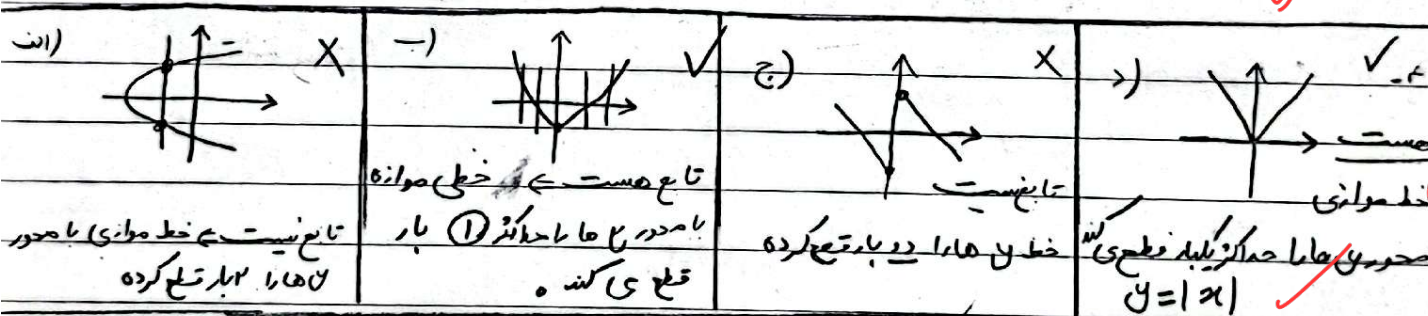 الف)
تابع نیست ⇐ خط موازی با محور
yها را ۲بار قطع کرده
ب)
تابع هست ⇐ خطی موازی
با محور yها را حداکثر ① بار
قطع می کند.
ج)
تابع نیست
خط yها را دو بار قطع کرده
د)
هست
خط موازی
محور yها را حداکثر یکبار قطع می کند
y=|x|